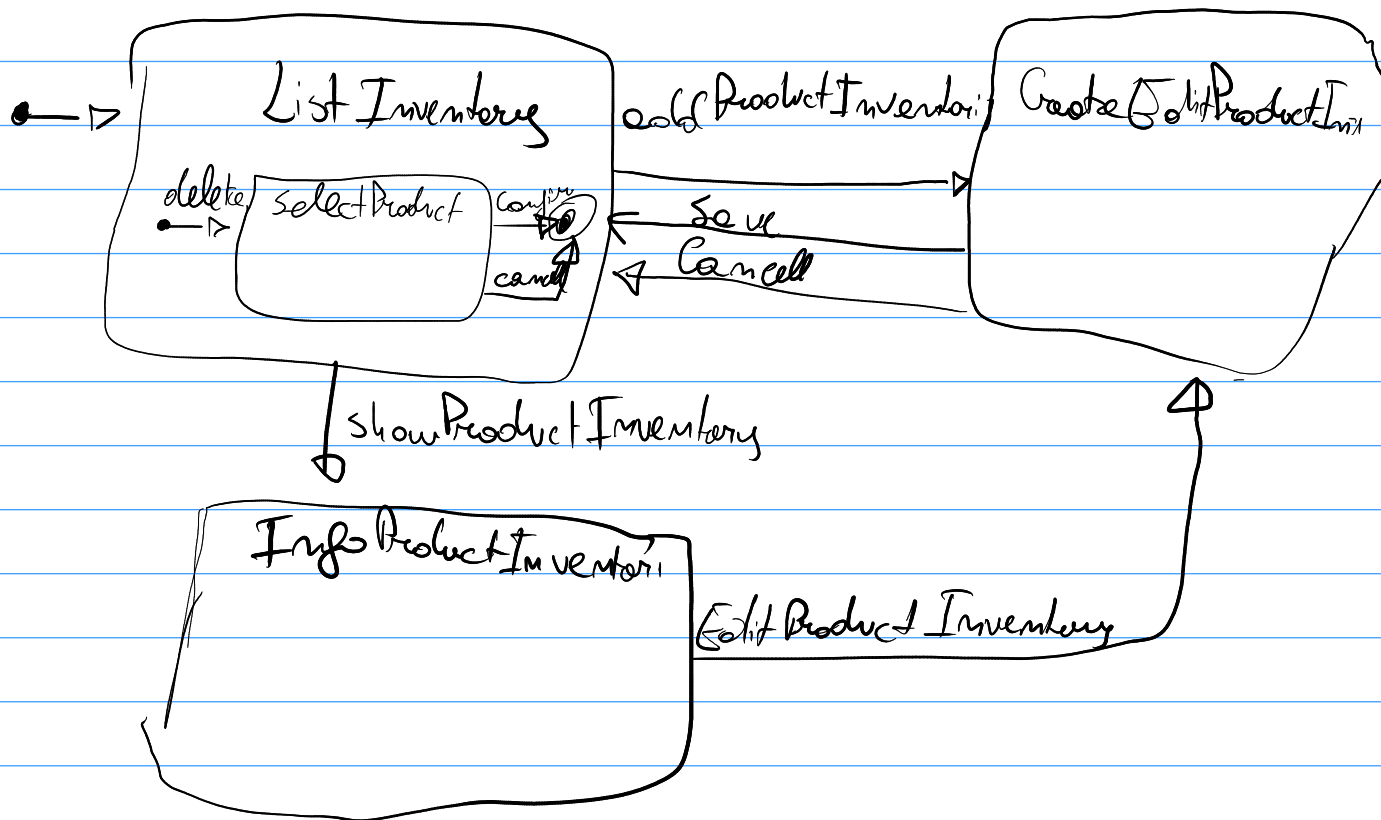 List Inventory
addProductInventori
Create/EditProductInv
delete
selectProduct
confirm
cancell
Save
Cancell
showProductInventory
InfoProductInventori
EditProductInventory